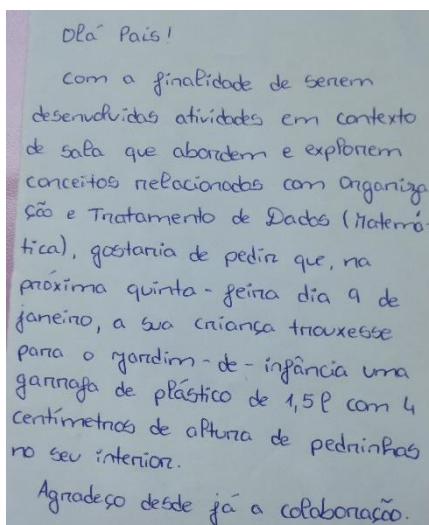 Olá Pais!
Com a finalidade de serem
desenvolvidas atividades em contexto
de sala que abordem e explorem
conceitos relacionados com Organiza
ção e Tratamento de Dados (Matemá-
tica), gostaria de pedir que, na
próxima quinta-feira dia 9 de
janeiro, a sua criança trouxesse
para o jardim-de-infância uma
garrafa de plástico de 1,5l com 4
centímetros de altura de pedrinhas
no seu interior.
Agradeço desde já a colaboração.